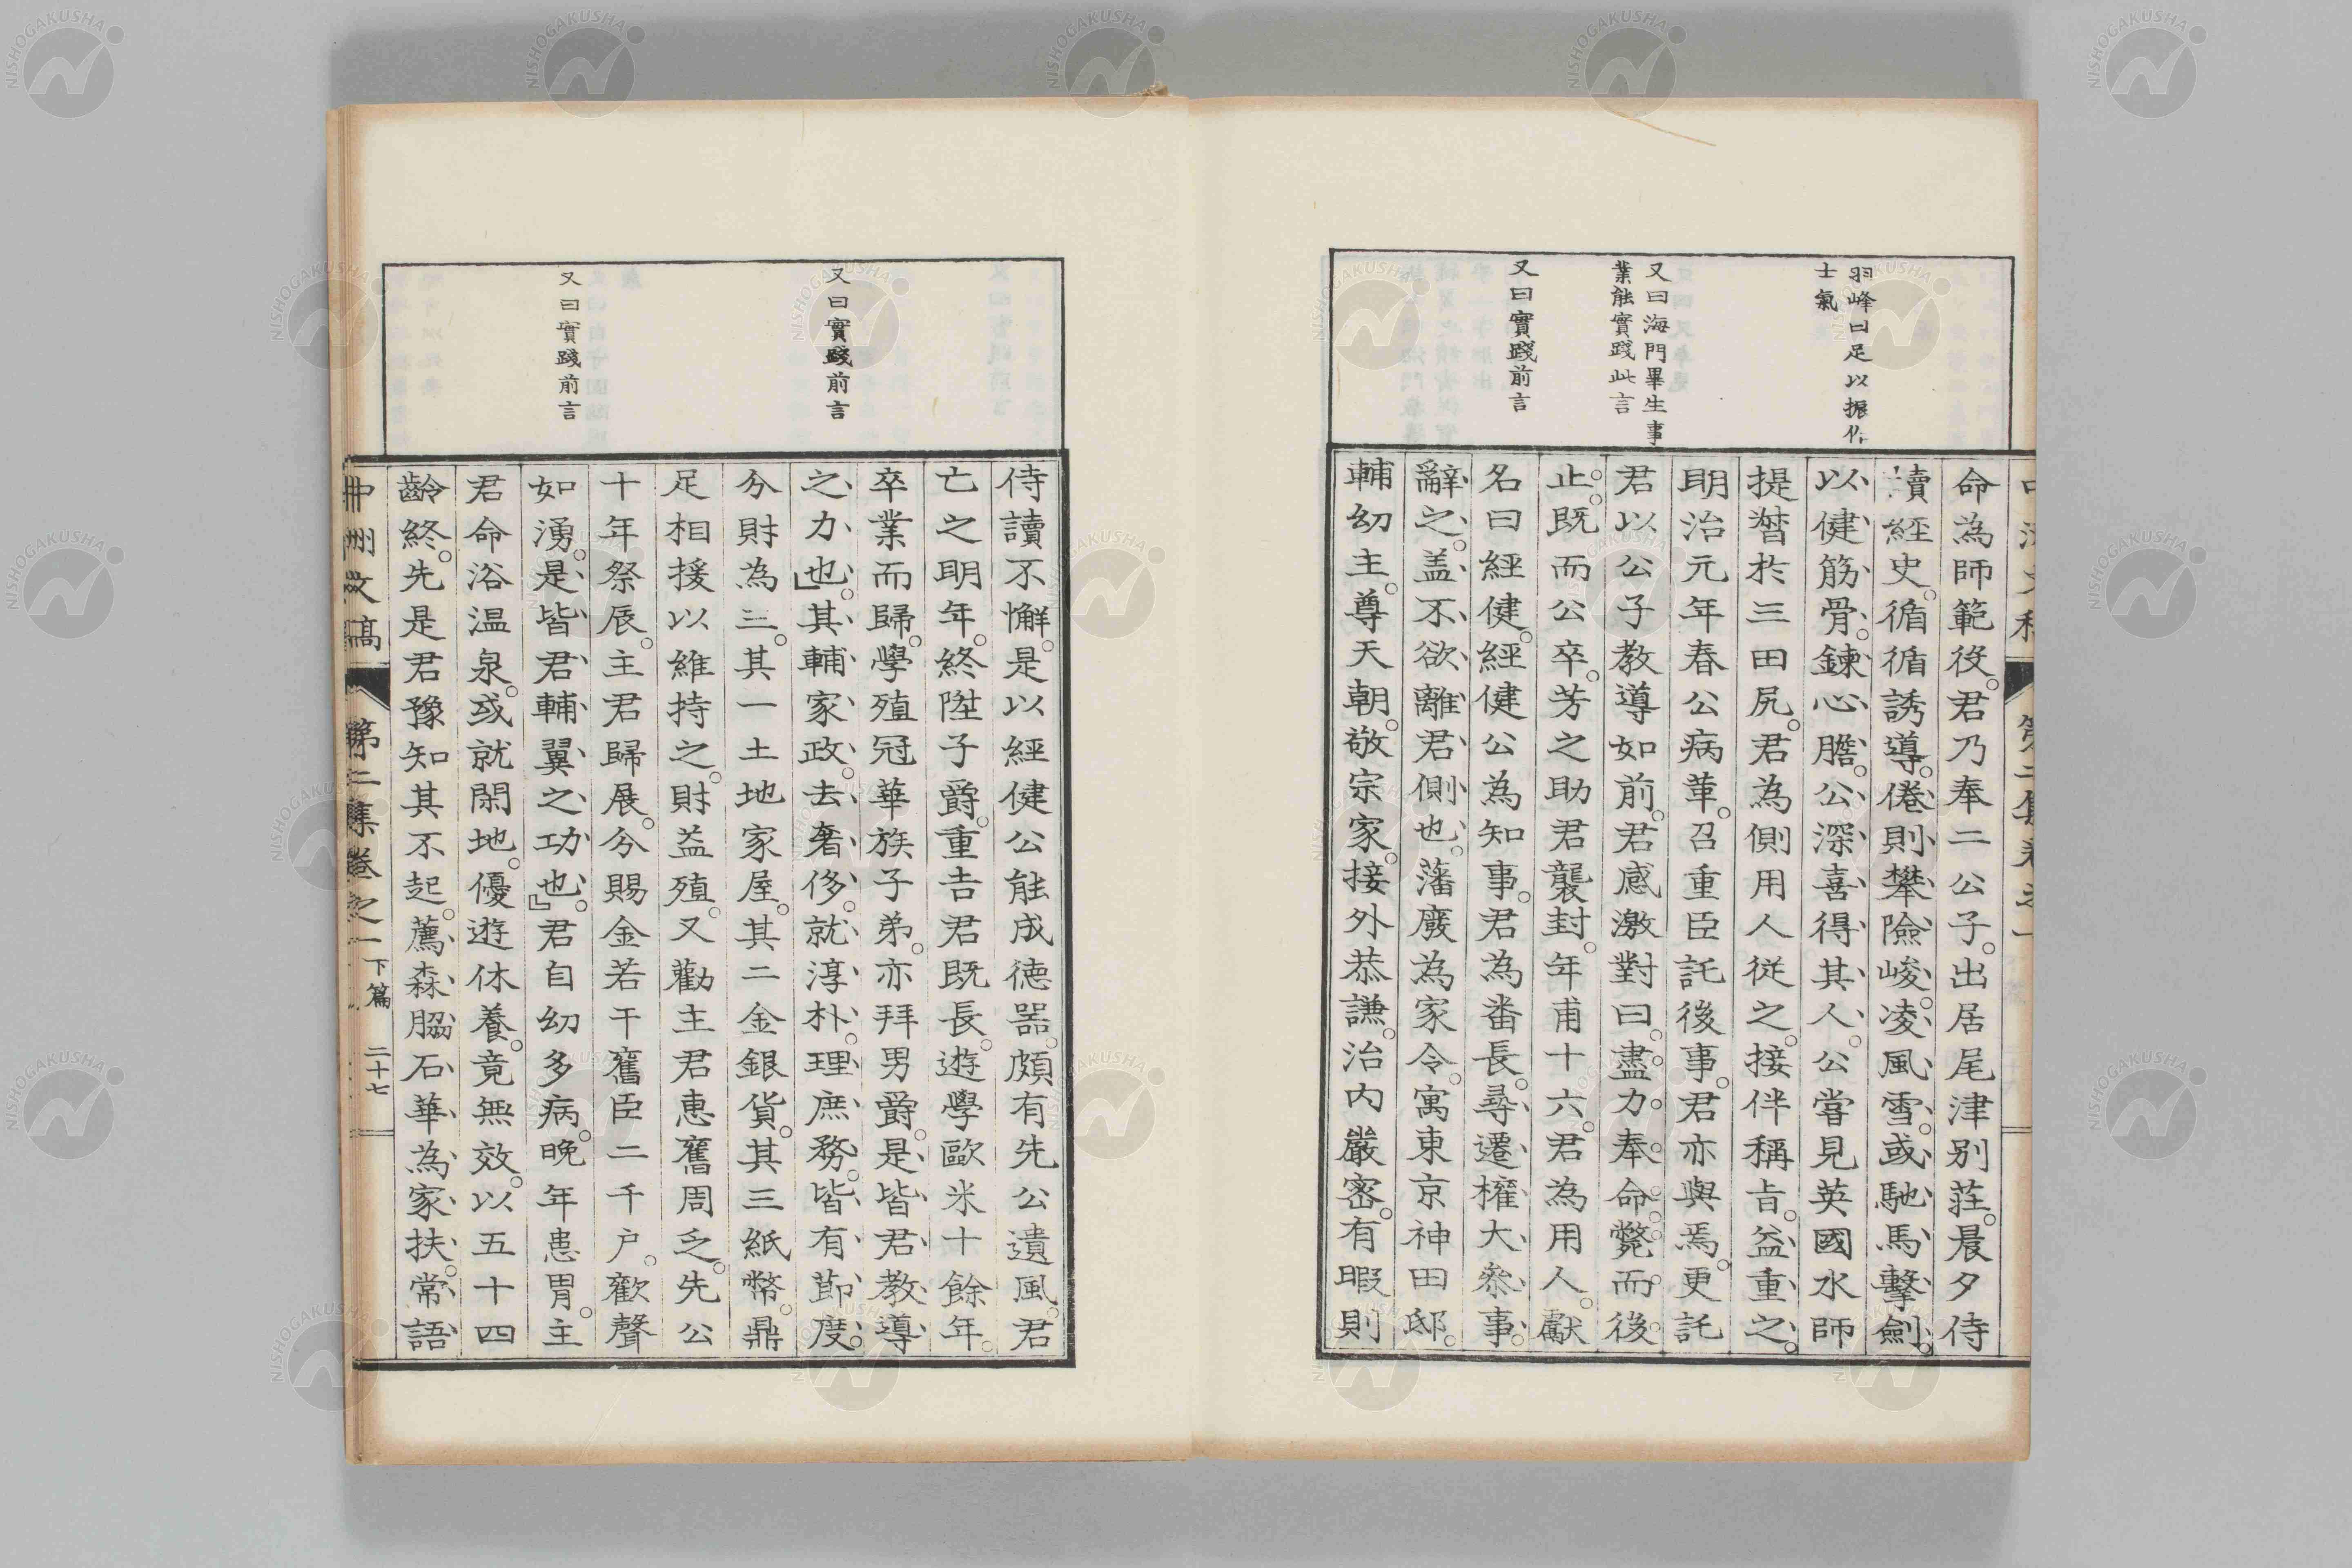 羽峰曰足以振作
士氣
又曰海門畢生事
業能實踐此言
又曰實踐前言
命為師範役。君乃奉二公子。出居尾津別莊。晨夕侍
讀經史。循循誘導。倦則攀險峻。凌風雪。或馳馬擊劍。
以健筋骨。鍊心膽。公深喜得其人。公嘗見英國水師
提督於三田尻。君為側用人從之。接伴稱旨。益重之。
明治元年春公病革。召重臣託後事。君亦與焉。更託
君以公子教導如前。君感激對曰。盡力奉命。斃而後
止。既而公卒。芳之助君襲封。年甫十六。君為用人。獻
名曰經健。經健公為知事。君為番長。尋遷權大參事。
辭之。蓋不欲離君側也。藩廢為家令。寓東京神田邸。
輔幼主。尊天朝。敬宗家。接外恭謙。治內嚴密。有暇則
又曰實踐前言
又曰實踐前言
侍讀不懈。是以經健公能成德器。頗有先公遺風。君
亡之明年。終陞子爵。重吉君既長。遊學歐米十餘年。
卒業而歸。學殖冠華族子弟。亦拜男爵。是皆君教導
之力也。」其輔家政。去奢侈。就淳朴。理庶務。皆有節度。
分財為三。其一土地家屋。其二金銀貨。其三紙幣。鼎
足相援以維持之。財益殖。又勸主君惠舊周乏。先公
十年祭辰。主君歸展。分賜金若干舊臣二千戶。歡聲
如湧。是皆君輔翼之功也。」君自幼多病。晚年患胃。主
君命浴溫泉。或就閑地。優遊休養。竟無效。以五十四
齡終。先是君豫知其不起。薦森脇石華為家扶。常語
中洲文稿 第二集卷之一 下篇 二十七
NISHOGAKUSHA